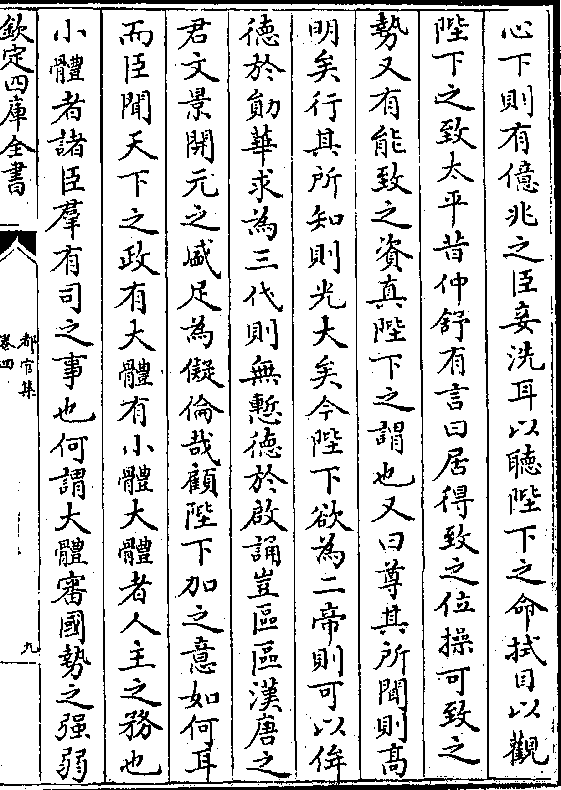 心下則有億兆之臣妾洗耳以聽陛下之命拭目以觀
陛下之致太平昔仲舒有言曰居得致之位操可致之
勢又有能致之資真陛下之謂也又曰尊其所聞則高
明矣行其所知則光大矣今陛下欲為二帝則可以侔
德於勛華求為三代則無慙德於啟誦豈區區漢唐之
君文景開元之盛足為儗倫哉顧陛下加之意如何耳
而臣聞天下之政有大體有小體大體者人主之務也
小體者諸臣羣有司之事也何謂大體審國勢之强弱
欽定四庫全書
都官集
卷四
九